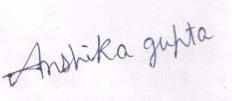 Anshika gupta